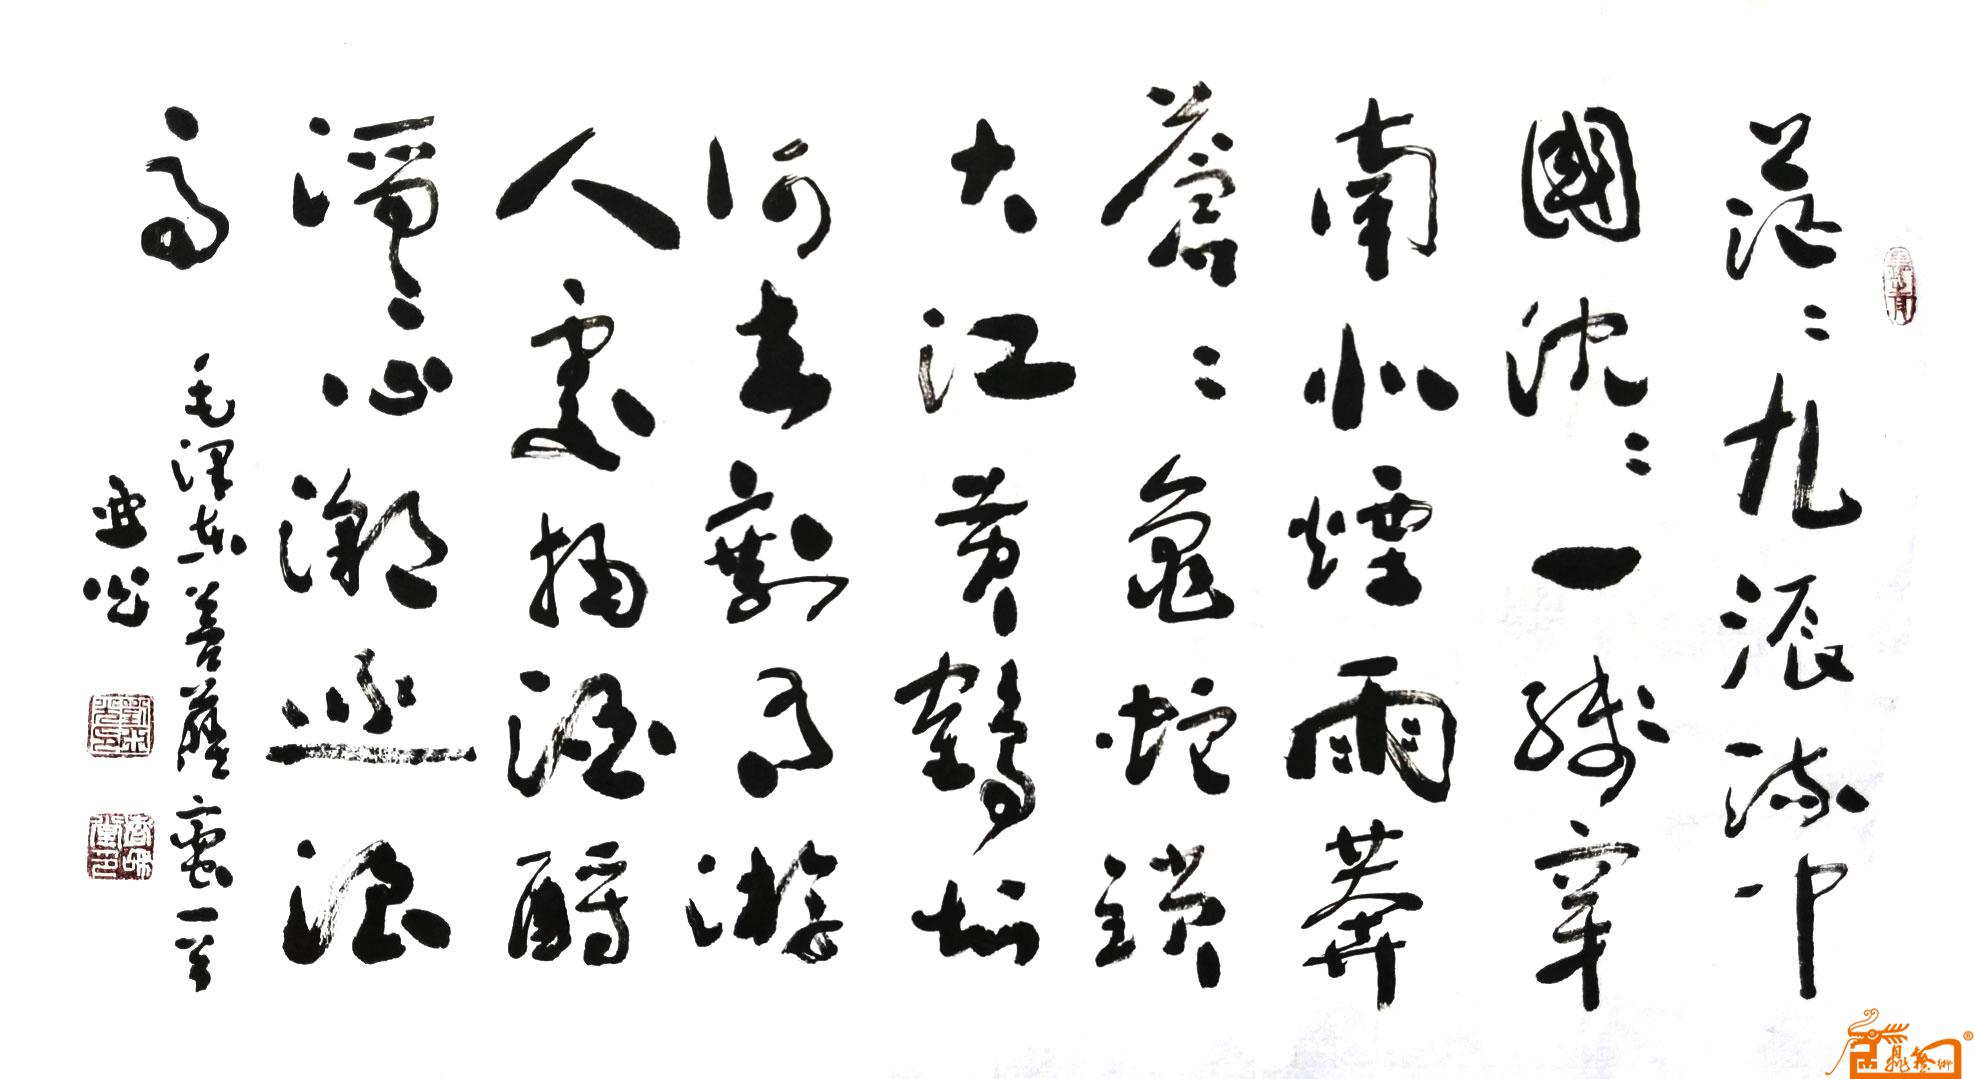 茫〻九派流中
國沈〻一綫穿
南北煙雨莽
蒼〻龜蛇鎖
大江黄鶴知
何去剩有游
人處把酒酹
滔〻心潮逐浪
高
毛澤東菩薩蠻一首
亚光